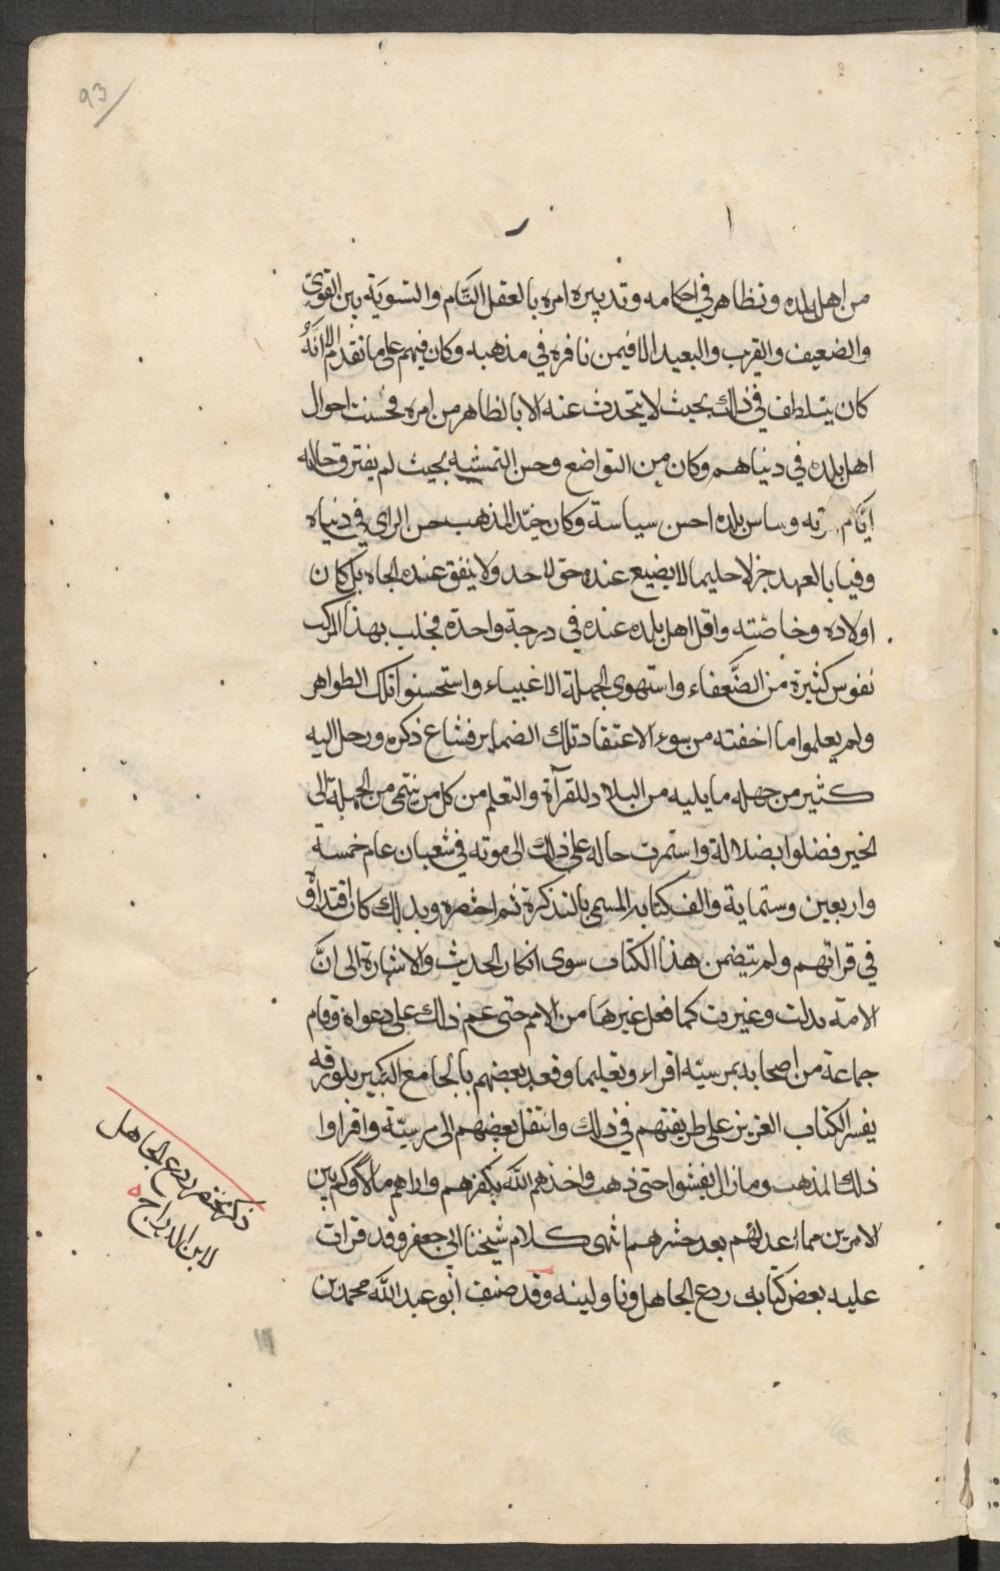 93
من اهل بلده وتظاهر في احكامه وتدبيره امره بالعقل التام والتسوية بين القوي
والضعيف والقرب والبعيد الا فيمن نافره في مذهبه وكان فيهم على ما تقدم الا انه
كان يتلطف في ذلك بحيث لا يتحدث عنه الا بالظاهر من امره فحسنت احوال
اهل بلده في دنياهم وكان من التواضع وحسن التمشيه بحيث لم يفترق حاله
ايام وساس بلده احسن سياسة وكان المذهب حسن الراي في دنياه
وفيا بالعهد جزلا حليما لا يضيع عنده حق لاحد ولا ينفق عنده الجاه بل كان
اولاده وخاصته واقل اهل بلده عنده في درجة واحدة فخلب بهذا المركب
نفوس كثيرة من الضعفاء واستهوى الجملة الاغبياء واستحسنوا تلك الظواهر
ولم يعلموا ما اخفته من سوء الاعتقاد تلك الضماير فشاع ذكره ورحل اليه
كثير من جهله ما يليه من البلاد للقرآة والتعلم من كل من ينتمي من الجملة الى
الخير فضلوا بضلالة واستمرت حاله على ذلك الى موته في شعبان عام خمسة
واربعين وستماية والف كتابه المسمى بالتذكرة ثم اختصره وبذلك كان
في قراتهم ولم يتضمن هذا الكتاب سوى انكار الحديث والاشارة الى ان
الامة بدلت وغيرت كما فعل غيرها من الامم حتى عم ذلك على دعواه وقام
جماعة من اصحابه بمرسيه اقراء وتعليما وقعد بعضهم بالجامع الكبير بلورقه
يفسر الكتاب العزيز على طريقتهم في ذلك وانتقل بعضهم الى مرسية واقراوا
ذلك المذهب وما زال يفشوا حتى ذهب واخذهم الله بكفرهم واراهم مالا وكم بين
الامرين مما اعد لهم بعد حشرهم انتهى كلام شيخنا ابي جعفر وقد قرات
عليه بعض كتابه ردع الجاهل وناولينه وقد صنف ابو عبد الله محمد بن
ذكر مختصر ردع الجاهل
لابن الدراج